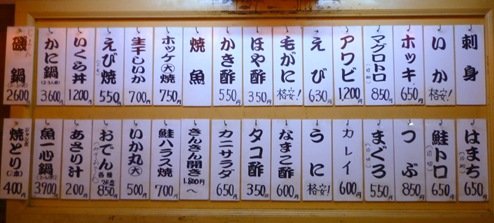 刺身
いか 格安!
ホッキ 650
マグロトロ 850
アワビ 1,200
えび 630
毛がに 格安!
ほや酢 350
かき酢 550
焼魚
ホッケ大焼 750
生干しいか 700
えび焼 550
いくら丼 1200
かに鍋 3600
磯鍋 2600
はまち 650
鮭トロ 650
つぶ 850
まぐろ 550
カレイ 600
うに 格安!
なまこ酢 600
タコ酢 350
カニサラダ 650
きんきん開き 1,800円
鮭ハラス焼 700
いか丸大 500
おでん 各種 850
あさり汁 200
魚一心鍋 3900
焼とり 400